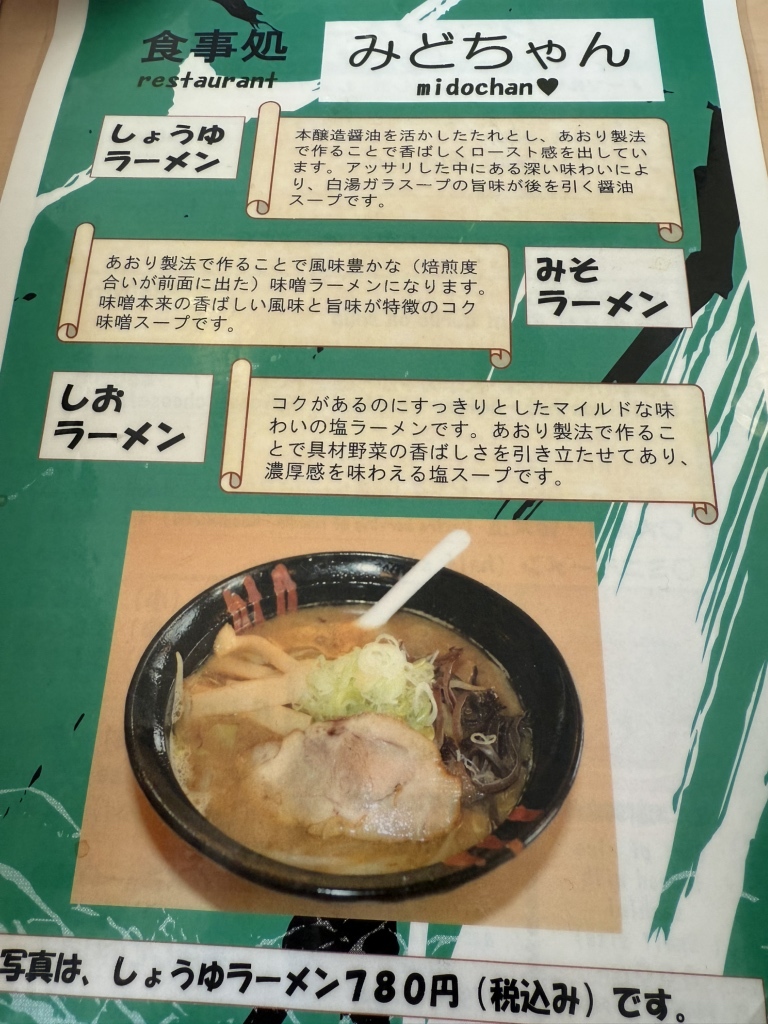 食事処
restaurant
みどちゃん
midochan♥
しょうゆ
ラーメン
本醸造醤油を活かしたたれとし、あおり製法
で作ることで香ばしくロースト感を出してい
ます。アッサリした中にある深い味わいによ
り、白湯ガラスープの旨味が後を引く醤油
スープです。
あおり製法で作ることで風味豊かな（焙煎度
合いが前面に出た）味噌ラーメンになります。
味噌本来の香ばしい風味と旨味が特徴のコク
味噌スープです。
みそ
ラーメン
しお
ラーメン
コクがあるのにすっきりとしたマイルドな味
わいの塩ラーメンです。あおり製法で作るこ
とで具材野菜の香ばしさを引き立たせてあり、
濃厚感を味わえる塩スープです。
写真は、しょうゆラーメン780円（税込み）です。